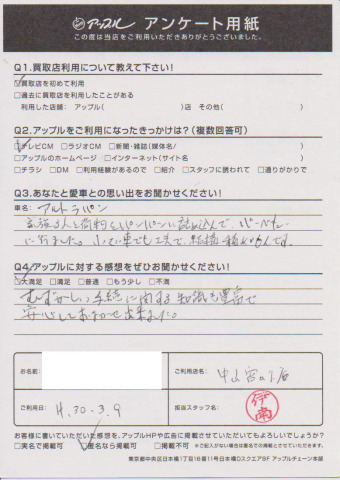 アップル アンケート用紙
この度は当店をご利用いただきありがとうございました。
Q1.買取店利用について教えて下さい!
☑買取店を初めて利用
□過去に買取店を利用したことがある
利用した店舗: アップル( )店 その他( )
Q2.アップルをご利用になったきっかけは?(複数回答可)
☑テレビCM □ラジオCM □新聞・雑誌(媒体名/ )
□アップルのホームページ □インターネット(サイト名 )
□チラシ □DM □利用経験があるので □紹介 □スタッフに誘われて □通りがかりで
Q3.あなたと愛車との思い出をお聞かせください!
車名: アルトラパン
家族3人と荷物をパンパンに詰め込んで、バーベキュー
に行きました。小さい車でも工夫で、結構積めるんです。
Q4.アップルに対する感想をぜひお聞かせください!
☑大満足 □満足 □普通 □もう少し □不満
むずかしい手続に関する知識も豊富で
安心しておまかせ出来ました。
お名前:
ご利用店名: 中山宮の前店
ご利用日: H.30-3.9
担当スタッフ名:
お客様に書いていただいた感想を、アップルHPや広告に掲載させていただいてもよろしいでしょうか?
□実名で掲載可 ☑匿名なら掲載可 □掲載不可 ※ご記入がない場合は匿名での掲載とさせていただきます。
東京都中央区日本橋1丁目16番11号日本橋Dスクエア8F アップルチェーン本部